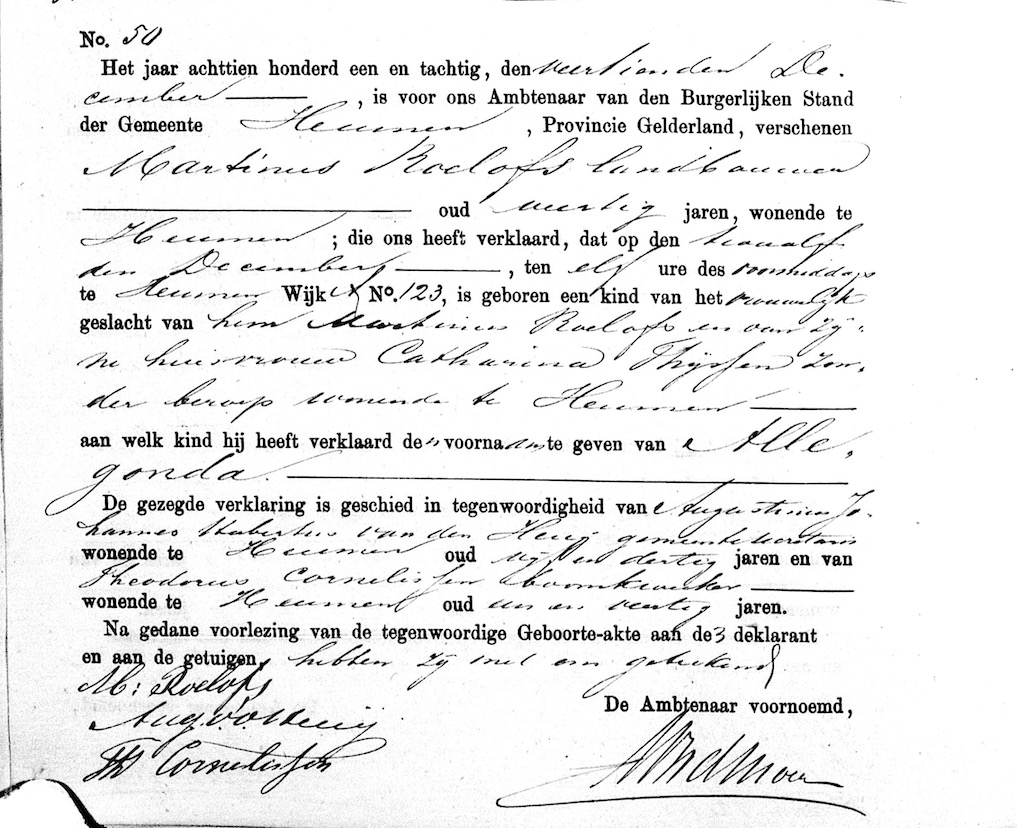 No. 50
Het jaar achttien honderd een en tachtig, den veertienden De-
cember , is voor ons Ambtenaar van den Burgerlijken Stand
der Gemeente Heumen , Provincie Gelderland, verschenen
Martinus Roelofs landbouwer
oud veertig jaren, wonende te
Heumen ; die ons heeft verklaard, dat op den twaalf
den December , ten elf ure des voormiddags
te Heumen Wijk No. 123, is geboren een kind van het vrouwelijk
geslacht van hem Martinus Roelofs en van zij-
ne huisvrouw Catharina Thijssen zon-
der beroep wonende te Heumen
aan welk kind hij heeft verklaard de voornaam te geven van Alle-
gonda.
De gezegde verklaring is geschied in tegenwoordigheid van Augustinus Jo-
hannes Hubertus van den gemeentesecretaris
wonende te Heumen oud vijf en dertig jaren en van
Theodorus Cornelissen boomkweker
wonende te Heumen oud een en veertig jaren.
Na gedane voorlezing van de tegenwoordige Geboorte-akte aan de deklarant
en aan de getuigen, hebben zij met ons geteekend
M: Roelofs
De Ambtenaar voornoemd,
Th Cornelissen